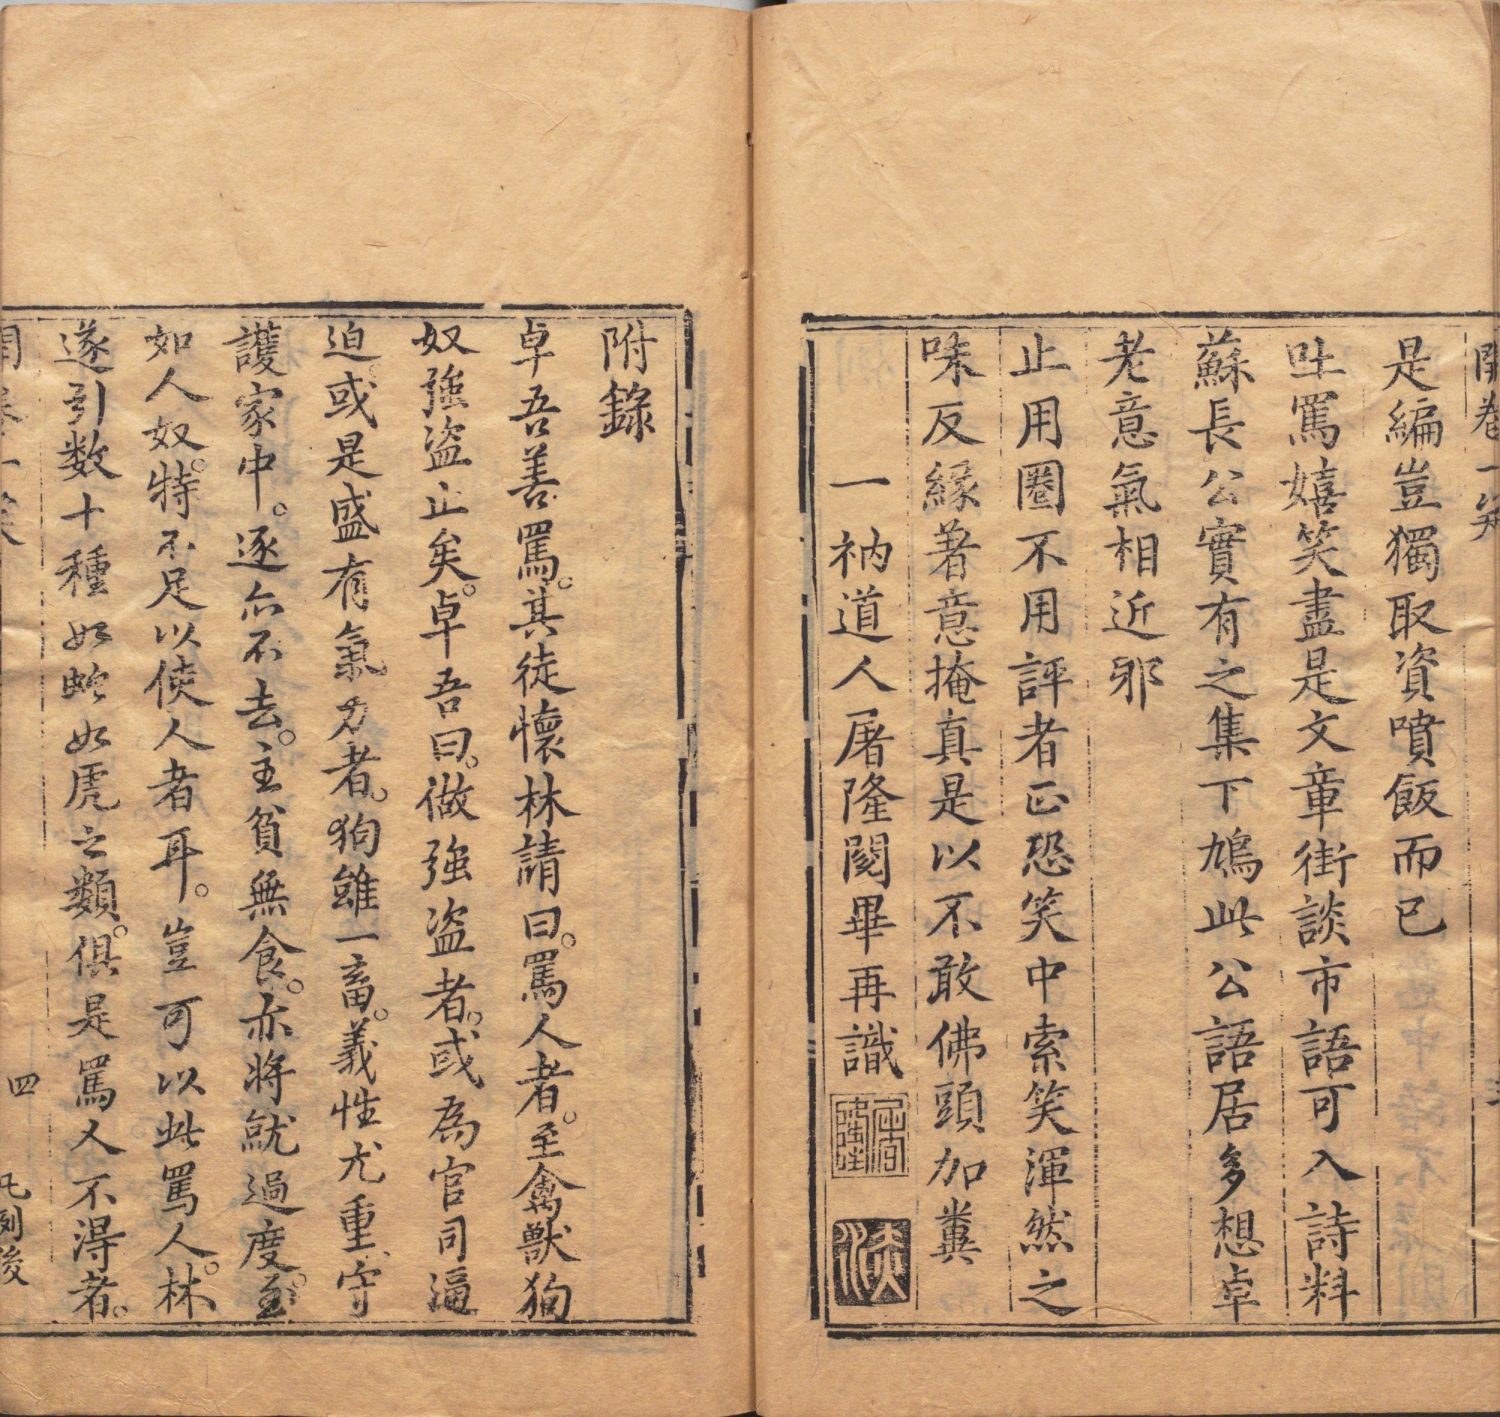 開卷一笑
是編豈獨取資噴飯而已
吐罵嬉笑盡是文章街談市語可入詩料
蘇長公實有之集下鳩此公語居多想卓
老意氣相近邪
止用圈不用評者正恐笑中索笑渾然之
味反緣著意掩真是以不敢佛頭加糞
一衲道人屠隆閱畢再識
附錄
卓吾善罵。其徒懷林請曰。罵人者。至禽獸狗
奴強盜止矣。卓吾曰。做強盜者。或為官司逼
迫。或是盛有氣力者。狗雖一畜。義性尤重、守
護家中。逐亦不去。主貧無食。亦將就過度。至
如人奴。特不足以使人者耳。豈可以此罵人。林
遂引数十種如蛇如虎之類。俱是罵人不得者。
開卷一笑
四
凡例後